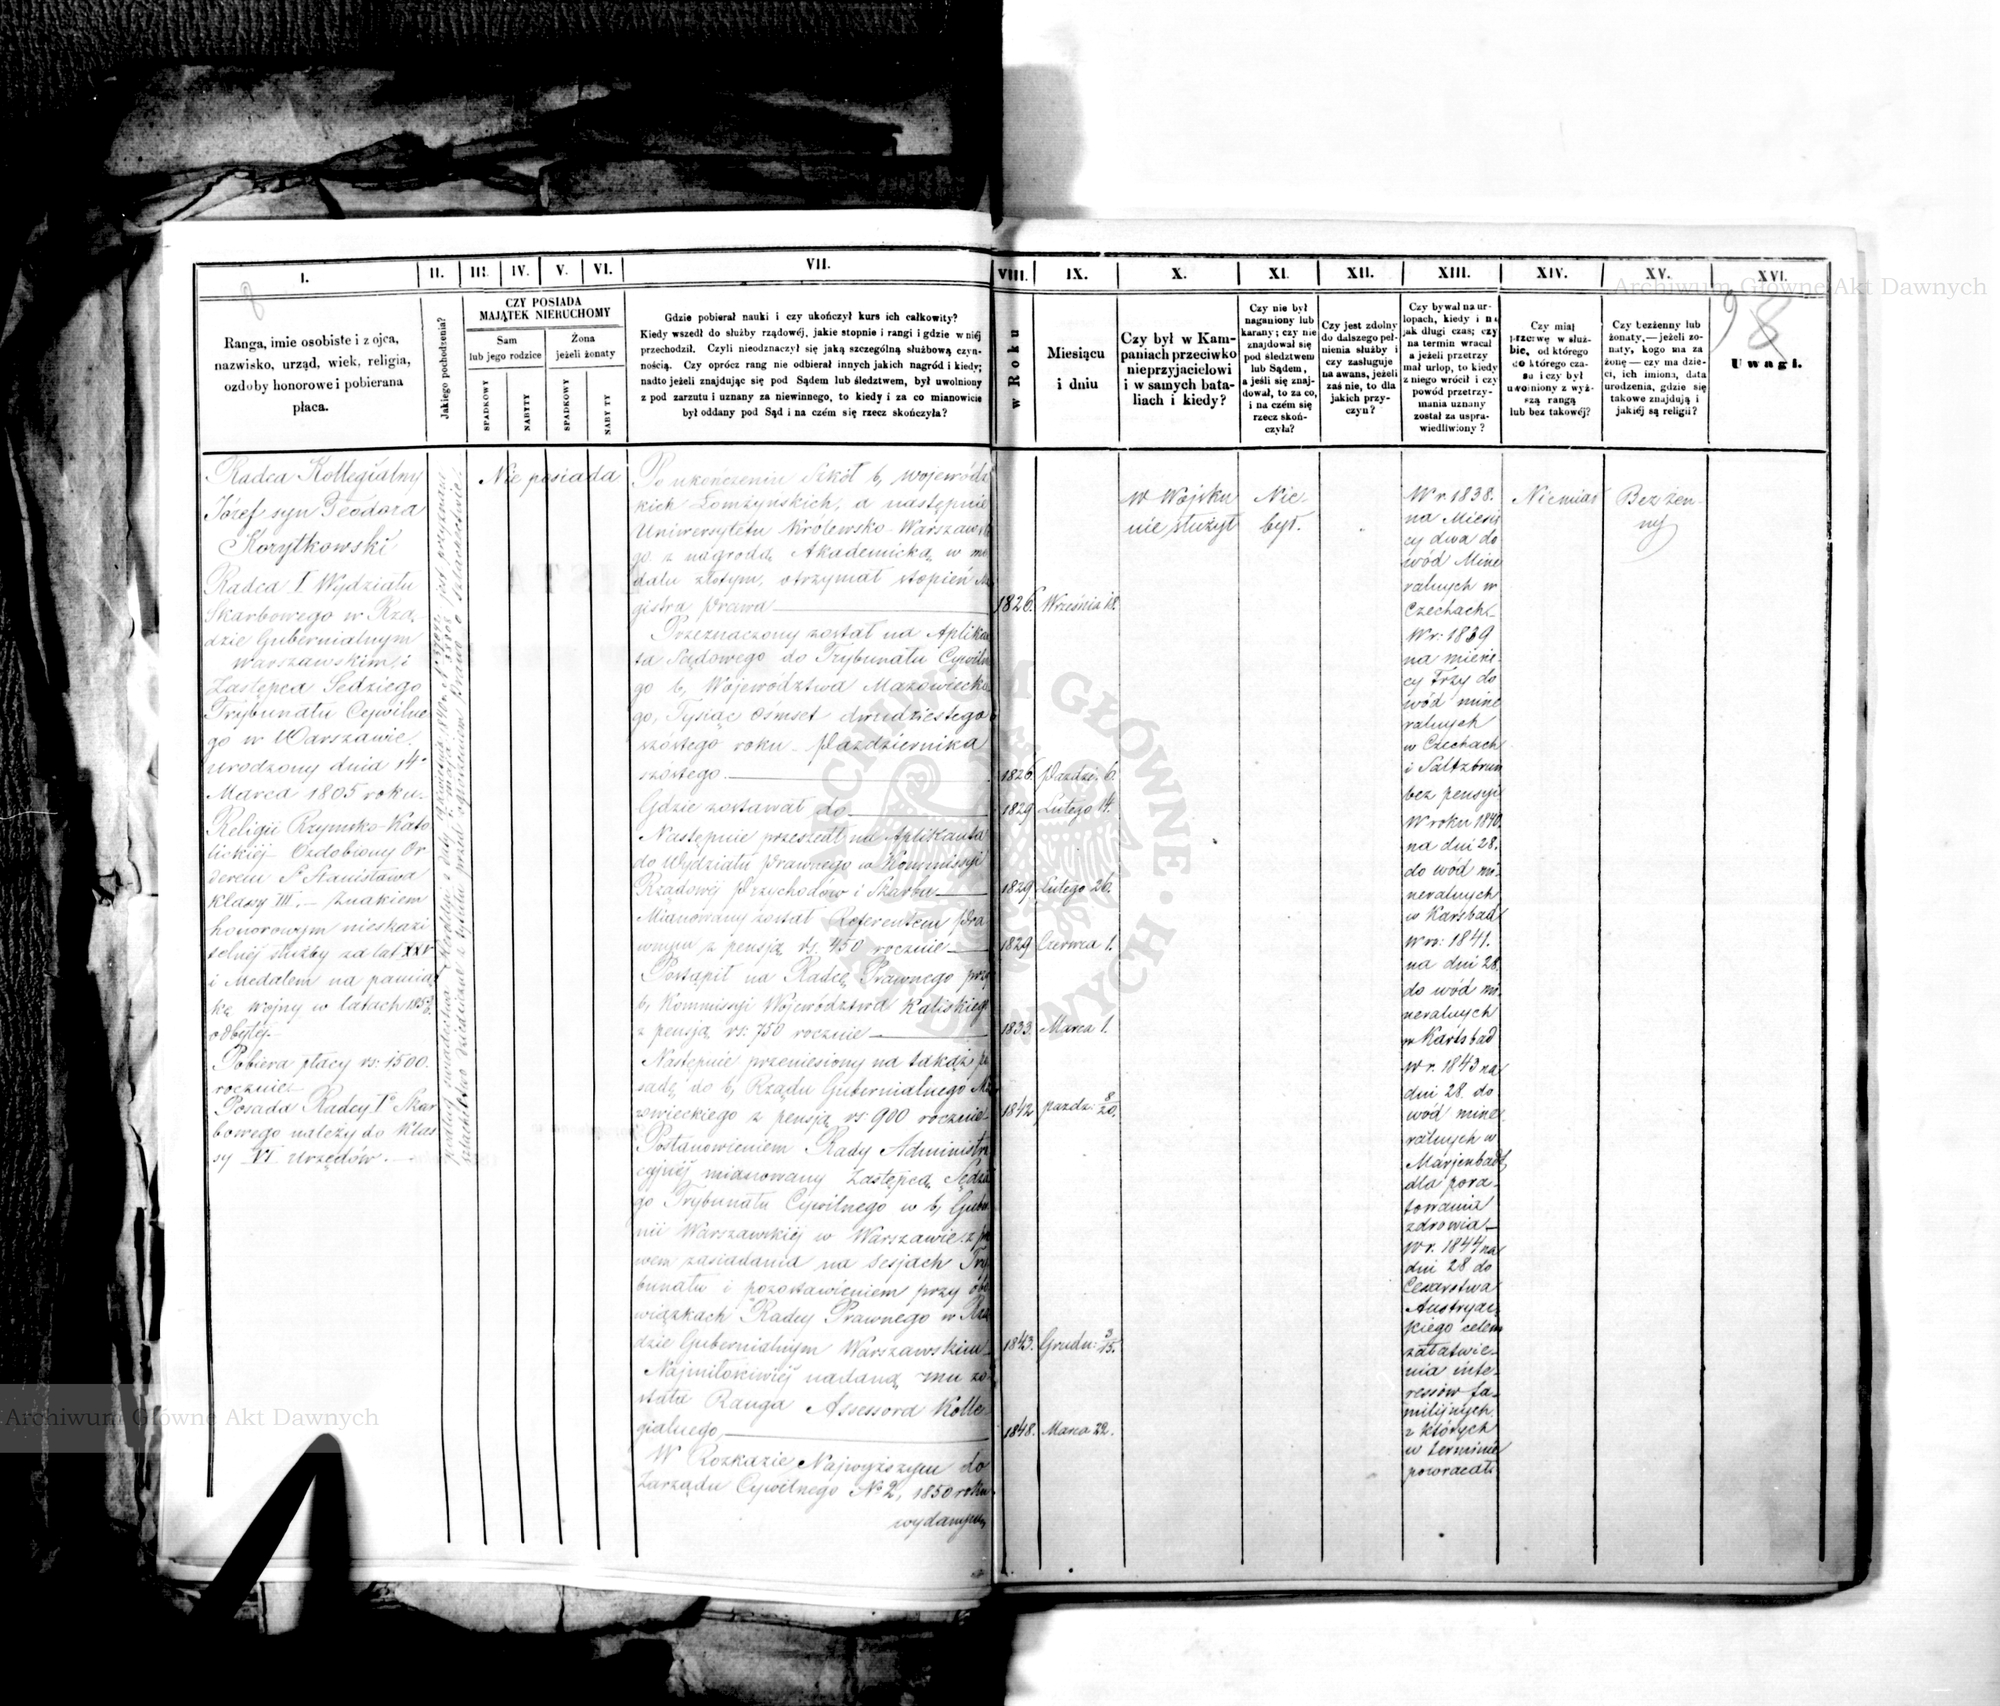 I.
II.
III.
IV.
V.
VI.
VII.
VIII.
IX.
X.
XI.
XII.
XIII.
XIV.
XV.
XVI.
Archiwum Główne Akt Dawnych
8
98
Ranga, imie osobiste i z ojca,
nazwisko, urząd, wiek, religia,
ozdoby honorowe i pobierana
płaca.
Jakiego pochodzenia?
CZY POSIADA
MAJĄTEK NIERUCHOMY
Sam
lub jego rodzice
Żona
jeżeli żonaty
SPADKOWY
NABYTY
SPADKOWY
NABYTY
Gdzie pobierał nauki i czy ukończył kurs ich całkowity?
Kiedy wszedł do służby rządowéj, jakie stopnie i rangi i gdzie w niéj
przechodził. Czyli nieodznaczył się jaką szczególną służbową czyn-
nością. Czy oprócz rang nie odbierał innych jakich nagród i kiedy;
nadto jeżeli znajdując się pod Sądem lub śledztwem, był uwolniony
z pod zarzutu i uznany za niewinnego, to kiedy i za co mianowicie
był oddany pod Sąd i na czém się rzecz skończyła?
w Roku
Miesiącu
i dniu
Czy był w Kam-
paniach przeciwko
nieprzyjacielowi
i w samych bata-
liach i kiedy?
Czy nie był
naganiony lub
karany; czy nie
znajdował się
pod śledztwem
lub Sądem,
a jeśli się znaj-
dował, to za co,
i na czém się
rzecz skoń-
czyła?
Czy jest zdolny
do dalszego peł-
nienia służby i
czy zasługuje
na awans, jeżeli
zaś nie, to dla
jakich przy-
czyn?
Czy bywał na ur-
lopach, kiedy i na
jak długi czas; czy
na termin wracał
a jeżeli przetrzy
mał urlop, to kiedy
z niego wrócił i czy
powód przetrzy-
mania uznany
został za uspra-
wiedliwiony?
Czy miał
przerwę w służ-
bie, od którego
do którego cza-
su i czy był
uwolniony z wyż-
szą rangą
lub bez takowéj?
Czy bezżenny lub
żonaty,—jeżeli żo-
naty, kogo ma za
żonę—czy ma dzie-
ci, ich imiona, data
urodzenia, gdzie się
takowe znajdują i
jakiéj są religii?
Uwagi.
Radca Kollegialny
Józef syn Teodora
Korytkowski
Radca I Wydziału
Skarbowego w Rzą-
dzie Gubernialnym
Warszawskim, i
Zastępca Sędziego
Trybunału Cywilne
go w Warszawie.
urodzony dnia 14
Marca 1805 roku.
Religii Rzymsko-Kato
lickiéj Ozdobiony Or
derem Sgo Stanisława
klasy III.— Znakiem
honorowym nieskazi
telnéj służby za lat XXV
i Medalem na pamiąt
kę wojny w latach
odbytéj.
Pobiera płacy rs: 1500.
rocznie
Posada Radcy Igo Skar
bowego należy do klas
sy VI urzędów.
Nie posiada
Po ukończeniu Szkół b, wojewódz
kich Łomżyńskich, a następnie
Uniwersytetu Królewsko-Warszawskie
go z nagrodą Akademicką w me
dalu złotym, otrzymał stopień Ma
gistra Prawa
1826. Września 18.
Przeznaczony został na Aplikan
ta Sądowego do Trybunału Cywilne
go b, Województwa Mazowieckie
go, Tysiąc Ośmset dwudziestego
szóstego roku Października
szóstego.
1826. Paździ: 6.
Gdzie zostawał do
1829 Lutego 14.
Następnie przeszedł na Aplikanta
do Wydziału Prawnego w Kommissyi
Rządowéj Przychodów i Skarbu
1829. Lutego 26.
Mianowany został Referentem Pra
wnym z pensją rs. 450 rocznie
1829 Czerwca 1.
Postąpił na Radcę Prawnego przy
b, Kommissyi Województwa Kaliskiego
z pensją rs: 750 rocznie
1833. Marca 1.
Następnie przeniesiony na takąż po
sadę do b, Rządu Gubernialnego Ma
zowieckiego z pensją rs: 900 rocznie
1842 paździ: 8/20.
Postanowieniem Rady Administra
cyjnéj mianowany Zastępcą Sędzie
go Trybunału Cywilnego w b, Guber
nii Warszawskiéj w Warszawie z pra
wem zasiadania na sesjach Try
bunału i pozostawieniem przy obo
wiązkach Radcy Prawnego w Rzą
dzie Gubernialnym Warszawskim
1843. Grudn: 3/15.
Najmiłościwiéj nadaną mu zo-
stała Ranga Assessora Kolle-
gialnego,
1848. Marca 22.
W Rozkazie Najwyższym do
Zarządu Cywilnego No 2, 1850 roku
wydanym,
w Wojsku
nie służył
Nie
był.
W r. 1838.
na Miesię
cy dwa do
wód Mine
ralnych w
Czechach
W r: 1839
na miesię-
cy trzy do
wód mine
ralnych
w Czechach
i Saltzbrun
bez pensyi
W roku 1840.
na dni 28.
do wód mi
neralnych
w Karsbad
W r: 1841.
na dni 28.
do wód mi
neralnych
w Karlsbad
W r. 1843 na
dni 28. do
wód mine
ralnych w
Marjenbadt
dla pora-
towania
zdrowia
W r. 1844 na
dni 28 do
Cesarstwa
Austryac
kiego celem
załatwie-
nia inte-
ressów fa-
milijnych
z których
w terminie
powracał
Niemiał
Bezżen-
ny
Archiwum Główne Akt Dawnych
ARCHIWUM GŁÓWNE • AKT DAWNYCH •